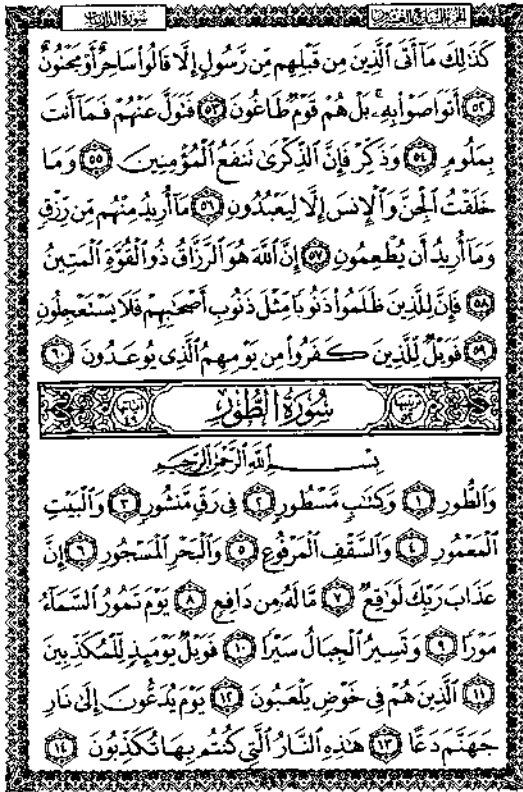 الجزء السابع والعشرون سورة الذاريات
كَذَٰلِكَ مَآ أَتَى ٱلَّذِينَ مِن قَبْلِهِم مِّن رَّسُولٍ إِلَّا قَالُوا۟ سَاحِرٌ أَوْ مَجْنُونٌ
﴿٥٢﴾ أَتَوَاصَوْا۟ بِهِۦ ۚ بَلْ هُمْ قَوْمٌ طَاغُونَ ﴿٥٣﴾ فَتَوَلَّ عَنْهُمْ فَمَآ أَنتَ
بِمَلُومٍ ﴿٥٤﴾ وَذَكِّرْ فَإِنَّ ٱلذِّكْرَىٰ تَنفَعُ ٱلْمُؤْمِنِينَ ﴿٥٥﴾ وَمَا
خَلَقْتُ ٱلْجِنَّ وَٱلْإِنسَ إِلَّا لِيَعْبُدُونِ ﴿٥٦﴾ مَآ أُرِيدُ مِنْهُم مِّن رِّزْقٍ
وَمَآ أُرِيدُ أَن يُطْعِمُونِ ﴿٥٧﴾ إِنَّ ٱللَّهَ هُوَ ٱلرَّزَّاقُ ذُو ٱلْقُوَّةِ ٱلْمَتِينُ
﴿٥٨﴾ فَإِنَّ لِلَّذِينَ ظَلَمُوا۟ ذَنُوبًا مِّثْلَ ذَنُوبِ أَصْحَٰبِهِمْ فَلَا يَسْتَعْجِلُونِ
﴿٥٩﴾ فَوَيْلٌ لِّلَّذِينَ كَفَرُوا۟ مِن يَوْمِهِمُ ٱلَّذِى يُوعَدُونَ ﴿٦٠﴾
سُورَةُ الطُّورِ آياتها ٤٩
بِسْمِ ٱللَّهِ ٱلرَّحْمَٰنِ ٱلرَّحِيمِ
وَٱلطُّورِ ﴿١﴾ وَكِتَٰبٍ مَّسْطُورٍ ﴿٢﴾ فِى رَقٍّ مَّنشُورٍ ﴿٣﴾ وَٱلْبَيْتِ
ٱلْمَعْمُورِ ﴿٤﴾ وَٱلسَّقْفِ ٱلْمَرْفُوعِ ﴿٥﴾ وَٱلْبَحْرِ ٱلْمَسْجُورِ ﴿٦﴾ إِنَّ
عَذَابَ رَبِّكَ لَوَٰقِعٌ ﴿٧﴾ مَّا لَهُۥ مِن دَافِعٍ ﴿٨﴾ يَوْمَ تَمُورُ ٱلسَّمَآءُ
مَوْرًا ﴿٩﴾ وَتَسِيرُ ٱلْجِبَالُ سَيْرًا ﴿١٠﴾ فَوَيْلٌ يَوْمَئِذٍ لِّلْمُكَذِّبِينَ
﴿١١﴾ ٱلَّذِينَ هُمْ فِى خَوْضٍ يَلْعَبُونَ ﴿١٢﴾ يَوْمَ يُدَعُّونَ إِلَىٰ نَارِ
جَهَنَّمَ دَعًّا ﴿١٣﴾ هَٰذِهِ ٱلنَّارُ ٱلَّتِى كُنتُم بِهَا تُكَذِّبُونَ ﴿١٤﴾